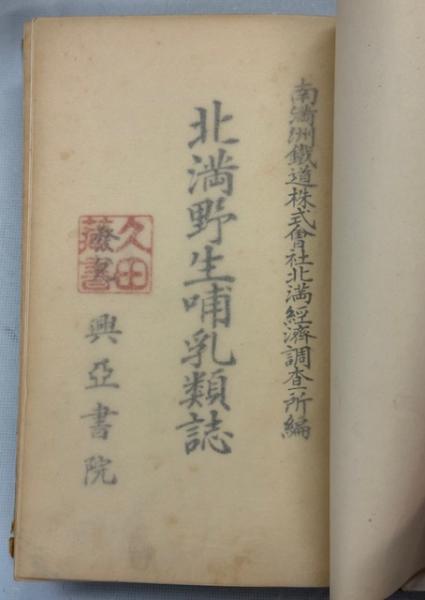 南満洲鐵道株式會社北満經濟調査所編
北満野生哺乳類誌
久田
藏書
興亞書院